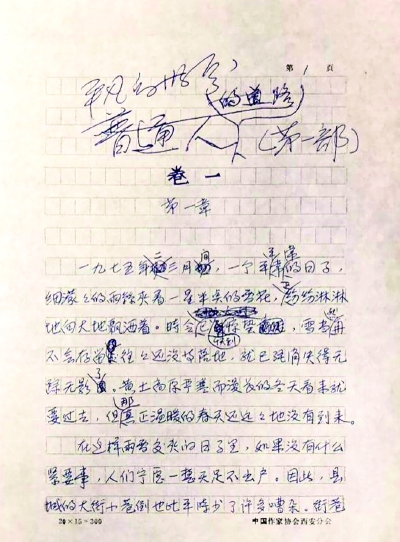 第 1 頁
平凡的世界
的道路
普通人（第一部）
卷一
第一章
一九七五年二三月间，一个平常的日子，
细濛々的雨丝夹着一星半点的雪花，纷纷淋淋
地向大地飘洒着。时令已快到惊蛰，雪当然再
不会存留，往々还没等落地，就已经消失得无
踪无影了。黄土高原严寒而漫长的冬天看来就
要过去，但那真正温暖的春天还远々地没有到来。
在这样雨雪交加的日子里，如果没有什么
紧要事，人们宁愿一整天足不出户。因此，县
城的大街小巷倒也比平时少了许多嘈杂。街巷
20×15=300
中国作家协会西安分会